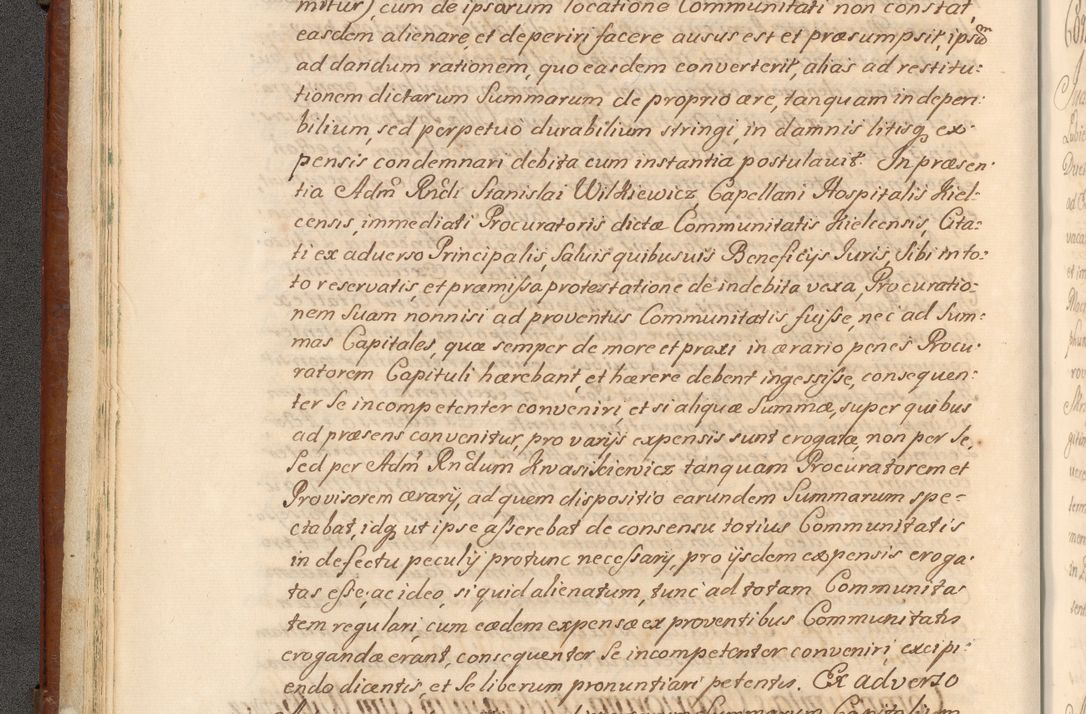 mittur) cum de ipsarum locatione Communitati non constat,
easdem alienare, et deperiri facere ausus est et præsumpsit, ipsum
ad dandum rationem, quo easdem converterit, alias ad restitu-
tionem dictarum Summarum de proprio ære, tanquam in deperi-
bilium, sed perpetuo durabilium stringi, in damnis litisq, ex-
pensis condemnari debita cum instantia postulavit. In præsen-
tia Adm. Rndi Stanislai Wilkiewicz Capellani Hospitalis Kiel-
censis, immediati Procuratoris dictæ Communitatis Kielcensis, Cita-
ti ex adverso Principalis, Salvis quibusvis Beneficijs Juris, Sibi in to-
to reservatis, et præmissa protestatione de indebita vexa, Procuratio-
nem Suam nonnisi ad proventus Communitatis fuisse, nec ad Sum-
mas Capitales, quæ semper de more et praxi in ærario penes Procu-
ratorem Capituli hærebant, et hærere debent ingessisse, consequen-
ter Se incompetenter conveniri, et si aliquæ Summæ, super quibus
ad præsens convenitur, pro varijs expensis sunt erogatæ, non per Se,
Sed per Adm Rndum Kwasikiewicz tanquam Procuratorem et
Provisorem ærarij, ad quem dispositio earundem Summarum spe-
ctabat, idq, ut ipse asserebat de consensu totius Communitatis
in defectu peculij protunc necessarij, pro ijsdem expensis eroga-
tas esse, ac ideo, si quid alienatum, tunc ad totam Communita-
tem regulari, cum eædem expensæ ex proventibus Communitatis
erogandæ erant, consequenter Se incompetenter conveniri, excipi-
endo dicentis, et Se liberum pronuntiari petentis. Ex adverso